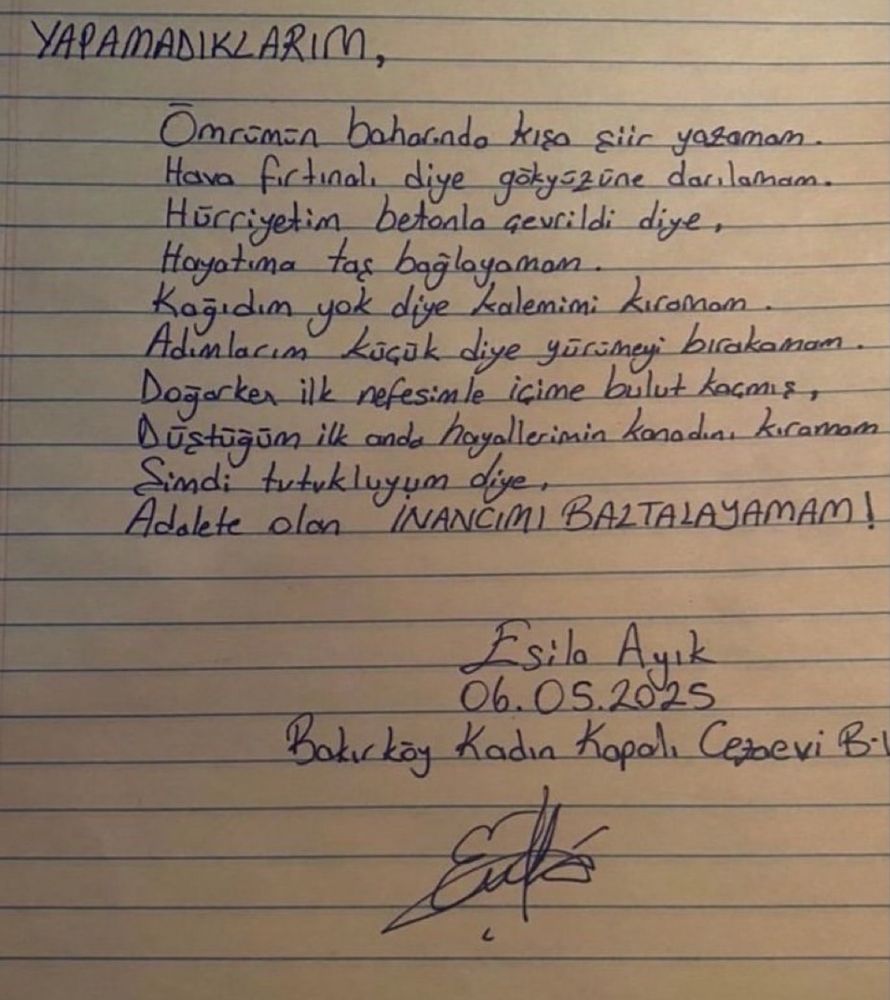 YAPAMADIKLARIM,
Ömrümün baharında kışa şiir yazamam.
Hava fırtınalı diye gökyüzüne darılamam.
Hürriyetim betonla çevrildi diye,
Hayatıma taş bağlayamam.
Kağıdım yok diye kalemimi kıramam.
Adımlarım küçük diye yürümeyi bırakamam.
Doğarken ilk nefesimle içime bulut kaçmış,
Düştüğüm ilk anda hayallerimin kanadını kıramam
Şimdi tutukluyum diye,
Adalete olan İNANCIMI BALTALAYAMAM!
Esila Ayık
06.05.2025
Bakırköy Kadın Kapalı Cezaevi B-